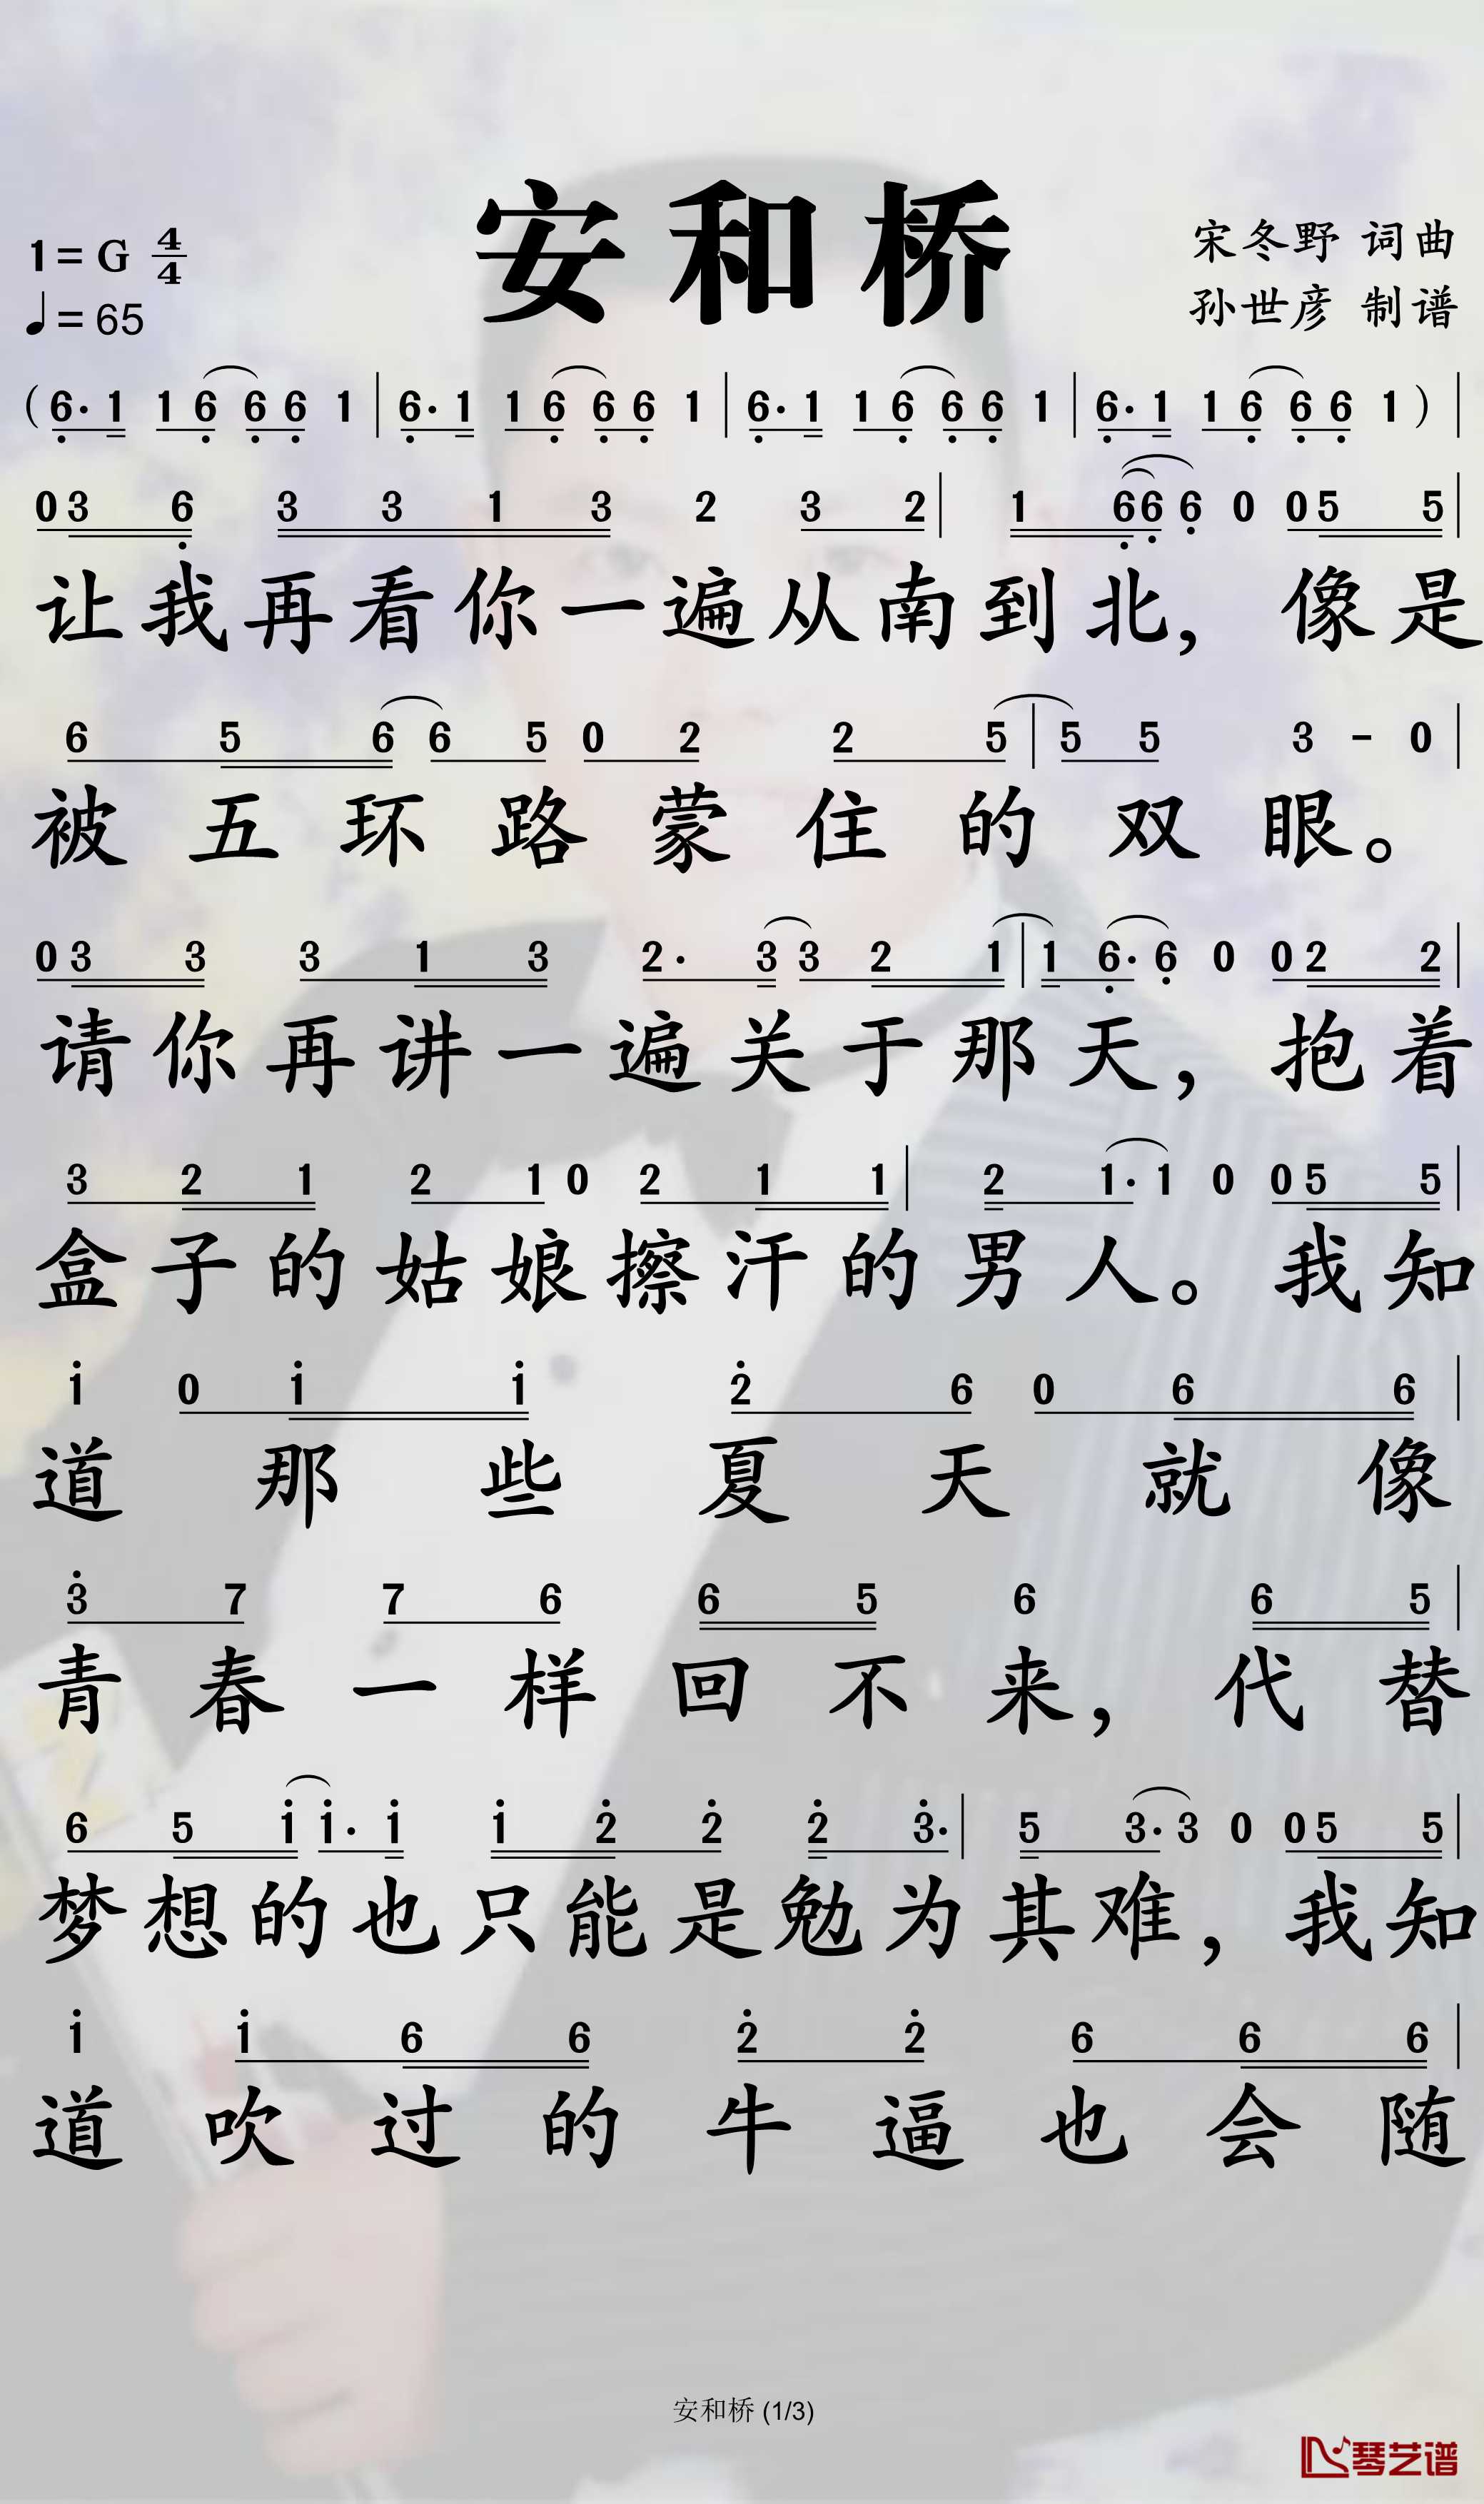 安和桥
1=G 4/4
♩=65
宋冬野 词曲
孙世彦 制谱
(6· 1 1 6 6 6 1 | 6· 1 1 6 6 6 1 | 6· 1 1 6 6 6 1 | 6· 1 1 6 6 6 1) |
0 3 6 3 3 1 3 2 3 2 | 1 6 6 6 0 0 5 5 |
让我再看你一遍从南到北，像是
6 5 6 6 5 0 2 2 5 | 5 5 3 - 0 |
被五环路蒙住的双眼。
0 3 3 3 1 3 2· 3 3 2 1 | 1 6· 6 0 0 2 2 |
请你再讲一遍关于那天，抱着
3 2 1 2 1 0 2 1 1 | 2 1· 1 0 0 5 5 |
盒子的姑娘擦汗的男人。我知
1 0 1 1 2 6 0 6 6 |
道那些夏天就像
3 7 7 6 6 5 6 6 5 |
青春一样回不来，代替
6 5 1 1· 1 1 2 2 2 3· | 5 3· 3 0 0 5 5 |
梦想的也只能是勉为其难，我知
1 1 6 6 2 2 6 6 6 |
道吹过的牛逼也会随
安和桥 (1/3)
琴艺谱